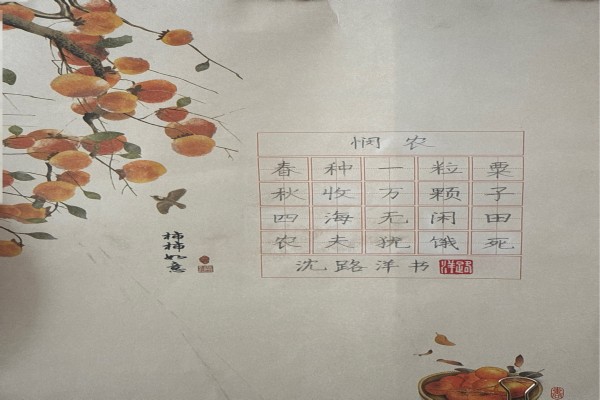 悯农
春种一粒粟
秋收万颗子
四海无闲田
农夫犹饿死
沈路洋书
柿柿如意